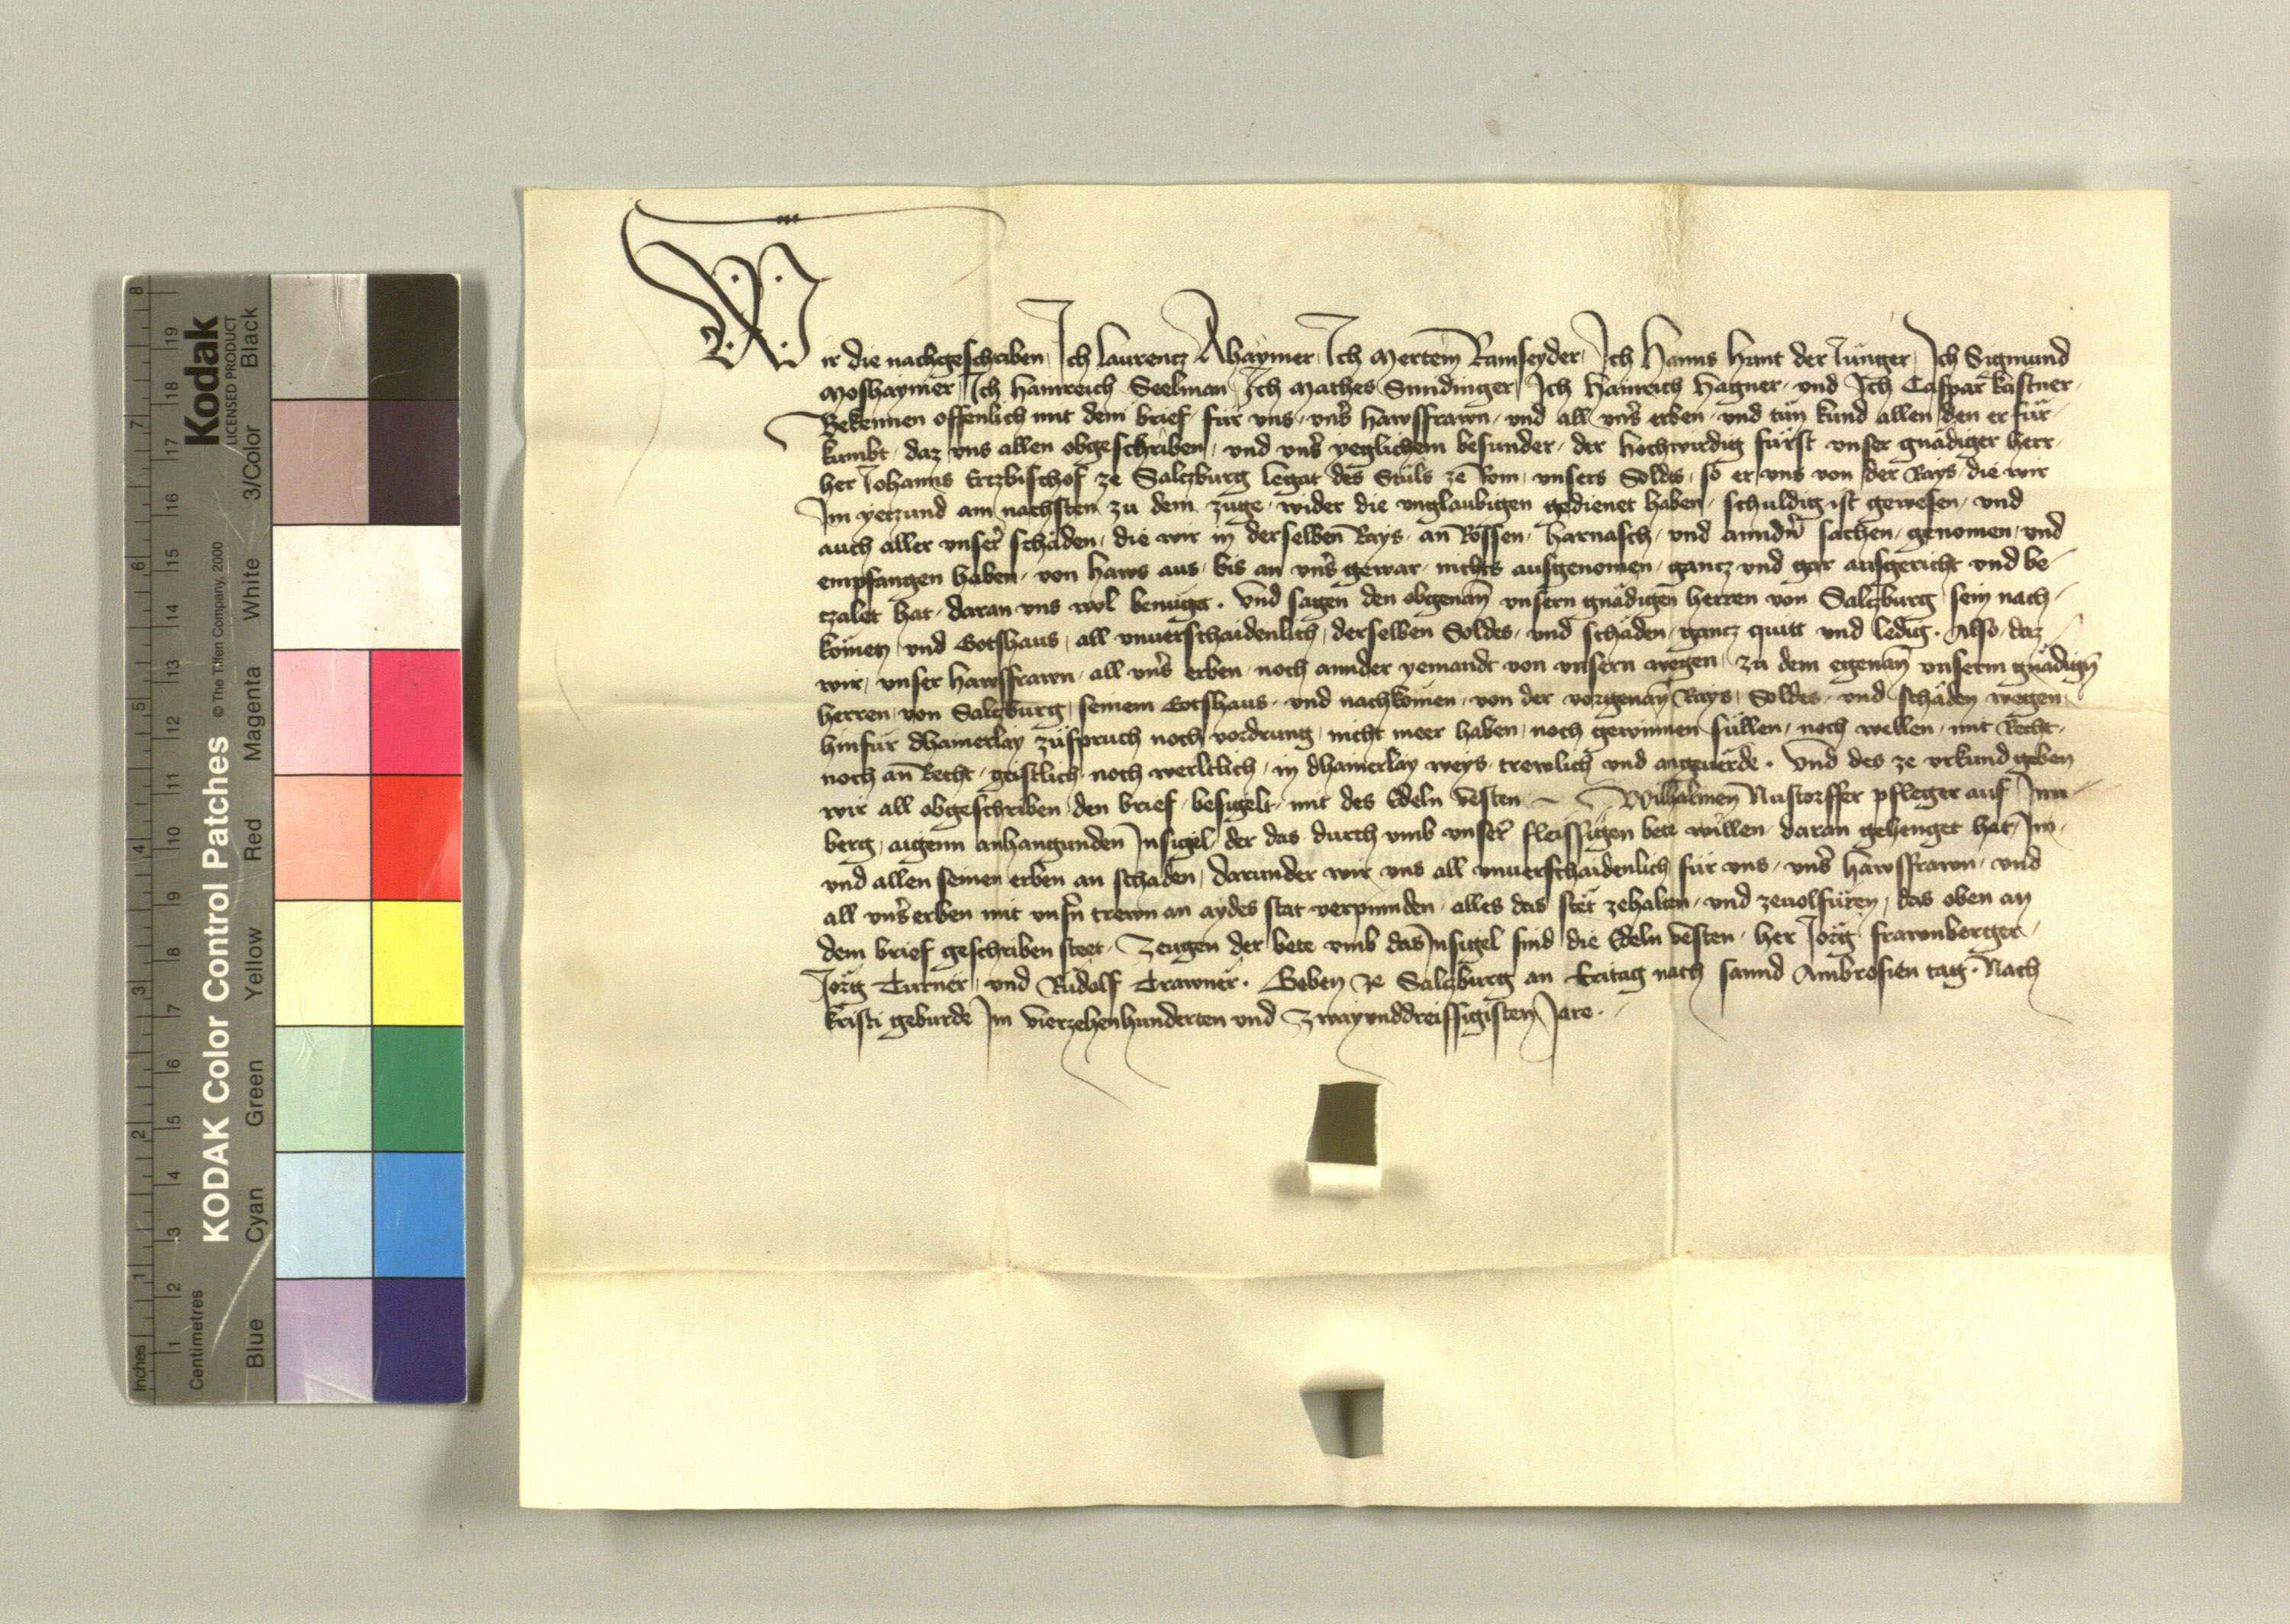 Wir die nachgeschriben, Ich Laurencz Abaÿmer, Ich Mertem̄ Ramseyder, Ich Hanns Hunt der Jünger, Ich Sigmund
Moshaymer, Ich Hainreich Seelman, Ich Mathes Smidinger, Ich Hainreich Hagner, und Ich Caspar Kastner,
Bekennen offenlich mit dem brief, für uns, uns̄ hawsfrawn, und all uns̄ erben, und tün kund allen den er für
kumbt, daz uns allen obgeschriben, und uns̄ yeglichem besunder, der hochwirdig fürst unser gnädiger herr,
her Johanns Ertzbischof ze Salczburg Legat des Stüls ze Rom, unsers Soldes, so er uns von der Rays, die wir
Im yeczund am nächsten zu dem zuge, wider die unglaubigen gedienet haben, schuldig ist gewesen, und
auch aller unser̄ schäden, die wir in derselben̄ Rays, an̄ Rossen, harnasch, und anndn̄ sachen, genomen, und
empfangen haben, von haws aus, bis an uns̄ gewar, nichts ausgenomen, gancz und gar ausgericht und be-
czalet hat, daran uns wol benüget. Und sagen den obgenan̄ unsern gnädigen herren von Salczburg, sein nach-
komen, und Gotshaus, all unuerschaidenlich, derselben Soldes, und schäden, gancz quitt und ledig. Also, daz
wir, unser hawsfrawn, all uns̄ erben, noch annder yemandt von unsern wegen, zu dem egenan̄ unserm gnädign̄
herren, von Salczburg, seinem Gotshaus, und nachkomen, von der vorgenan̄ Rays, Soldes, und schäden wegen,
hinfür dhainerlay züspruch noch vordrung, nicht meer haben, noch gewinnen süllen, noch wellen, mit Recht,
noch an̄ Recht, geistlich noch werltlich, in dhainerlay weys, trewlich und angeuerde. Und des ze urkund geben
wir all obgeschriben den brief, besigelt, mit des Edeln vesten Wilhalmen Nustorffer pfleger auf Jm-
berg, aigenn anhangunden Insigel, der das durch umb unser̄ fleissigen bete willen, daran gehenget hat, Im,
und allen seinen erben an schaden, darunder wir uns all unuerschaidenlich für uns, uns̄ hawsfrawn, und
all uns̄ erben mit unsn̄ trewn an aydes stat verpunden, alles das stet zehalten, und zeuolfüren, das oben an
dem brief geschriben steet. Zeugen der bete umb das Insigel sind die Edeln vesten, her Jörg Frawnberger,
Jörg Turner, und Rüdolf Trawner. Geben ze Salczburg an Eritag nach sannd Ambrosien tag. Nach
Kristi geburde Im vierzehenhunderten und Zwayunddreissigisten Jare.
KODAK Color Control Patches
Kodak
LICENSED PRODUCT
© The Tiffen Company, 2000
Centimetres
Inches
Blue Cyan Green Yellow Red Magenta White 3/Color Black
1 2 3 4 5 6 7 8 9 10 11 12 13 14 15 16 17 18 19
1 2 3 4 5 6 7 8